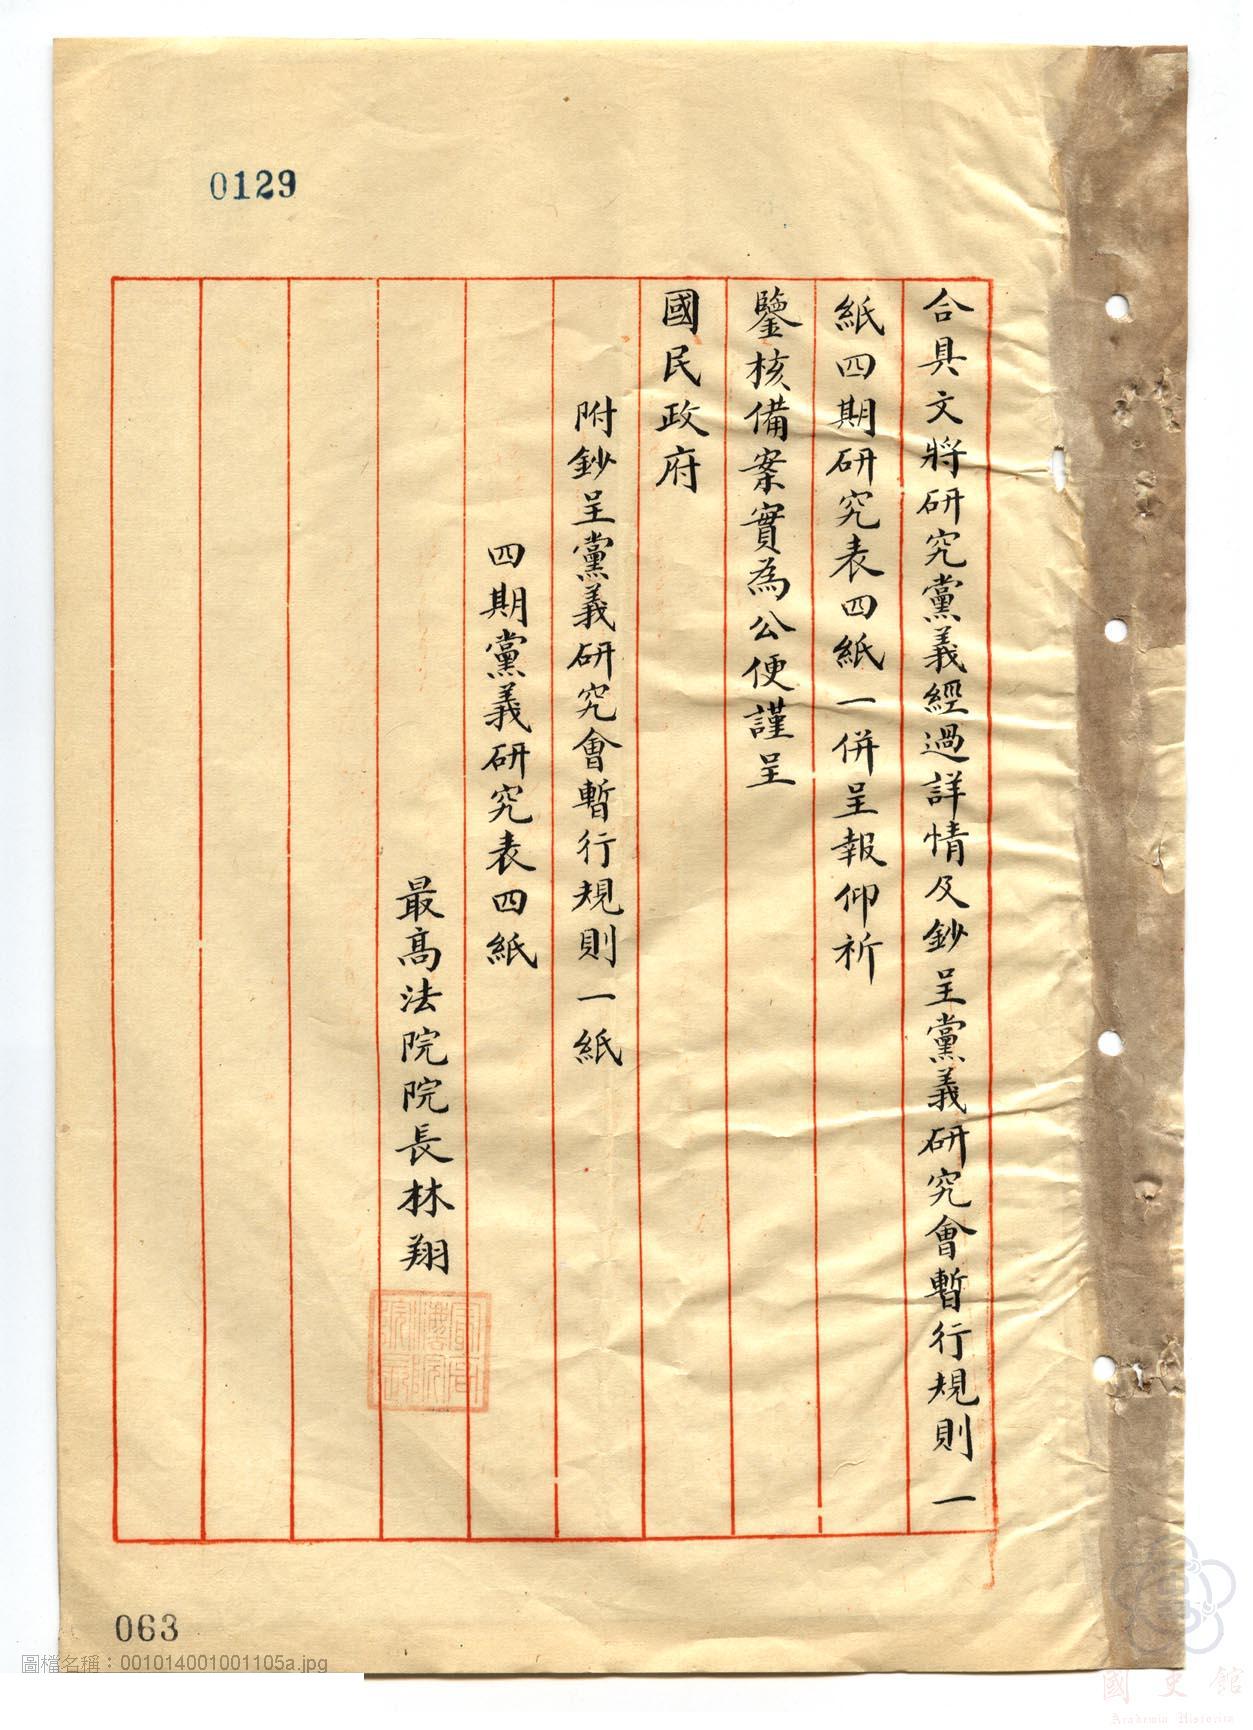 0129
合具文將研究黨義經過詳情及鈔呈黨義研究會暫行規則一
紙四期研究表四紙一併呈報仰祈
鑒核備案實為公便謹呈
國民政府
附鈔呈黨義研究會暫行規則一紙
四期黨義研究表四紙
最高法院院長林翔
063
圖檔名稱：001014001001105a.jpg
國史館
Academia Historica